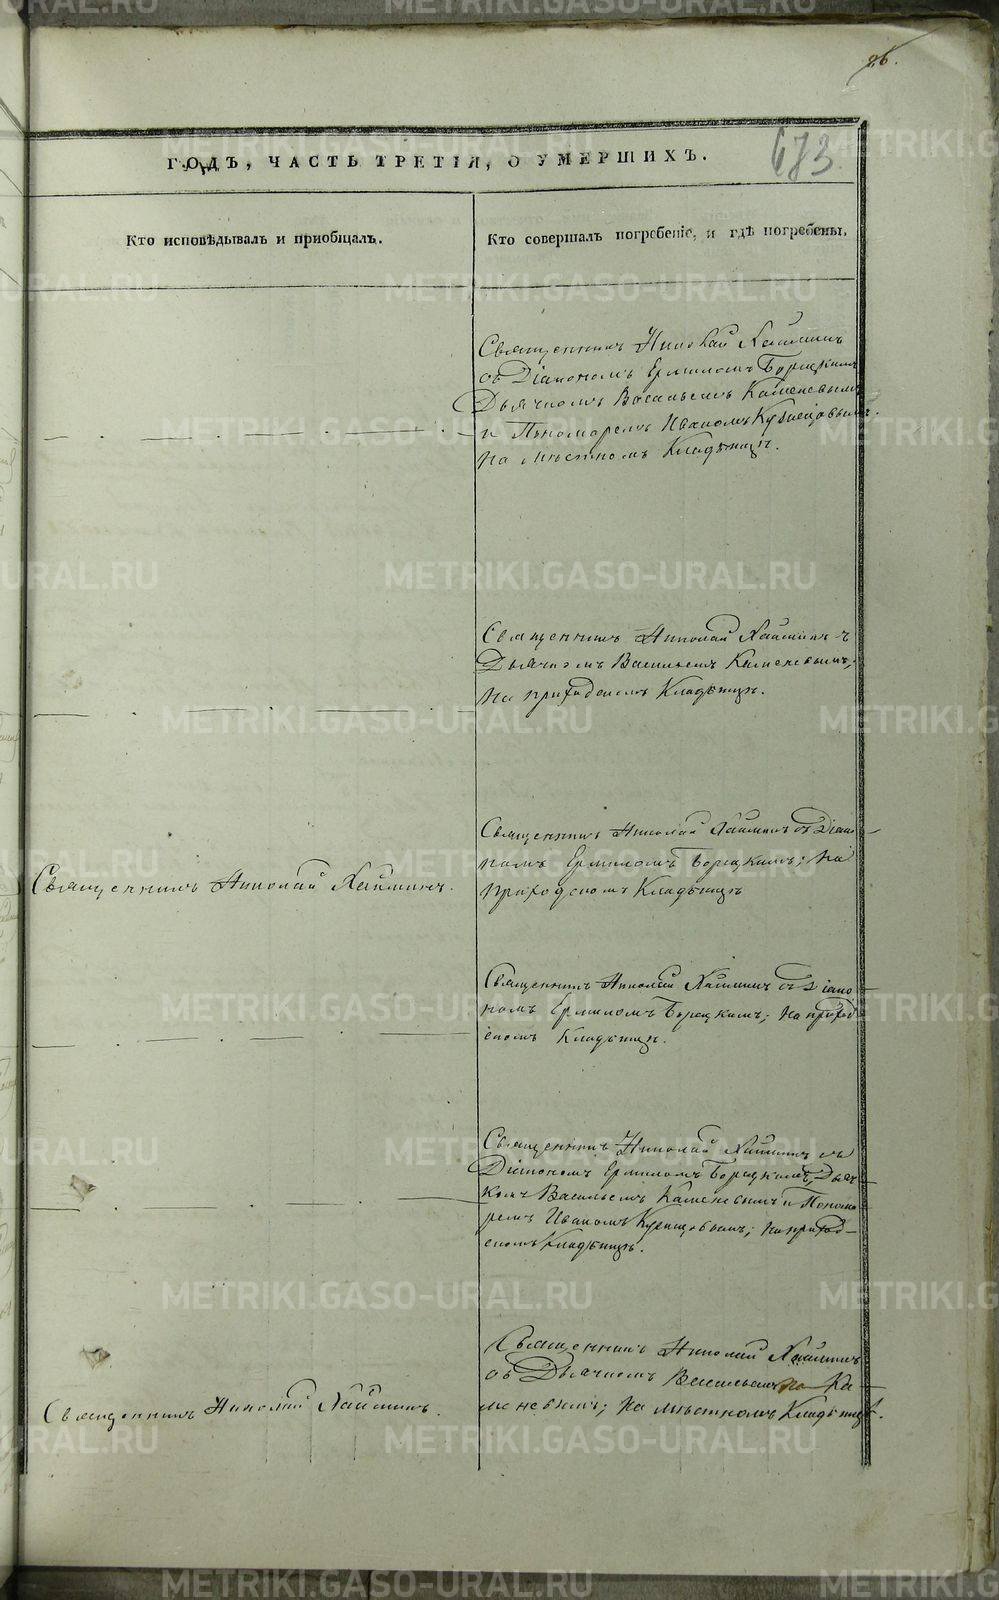 96.
673
ГОДЪ, ЧАСТЬ ТРЕТІЯ, О УМЕРШИХЪ.
Кто исповѣдывалъ и пріобщалъ.
Кто совершалъ погребеніе, и гдѣ погребены.
Священникъ Николай
съ Діакономъ Ермиломъ Борецкимъ
Дьячкомъ Васильемъ Каменевымъ
и Пономаремъ Иваномъ Кузнецовымъ
на мѣстномъ Кладбищѣ.
Священникъ Николай съ
Дьячкомъ Васильемъ Каменевымъ,
на приходскомъ Кладбищѣ.
Священникъ Николай съ Діако
номъ Ермиломъ Борецкимъ; на
приходскомъ Кладбищѣ
Священникъ Николай
Священникъ Николай съ Діако
номъ Ермиломъ Борецкимъ; на приход
скомъ Кладбищѣ.
Священникъ Николай съ
Діакономъ Ермиломъ Борецкимъ, Дьяч
комъ Васильемъ Каменевымъ и Понома
ремъ Иваномъ Кузнецовымъ; на приход-
скомъ Кладбищѣ.
Священникъ Николай
съ Дьячкомъ Васильемъ Ка
меневымъ; на мѣстномъ Кладбищѣ.
Священникъ Николай
METRIKI.GASO-URAL.RU